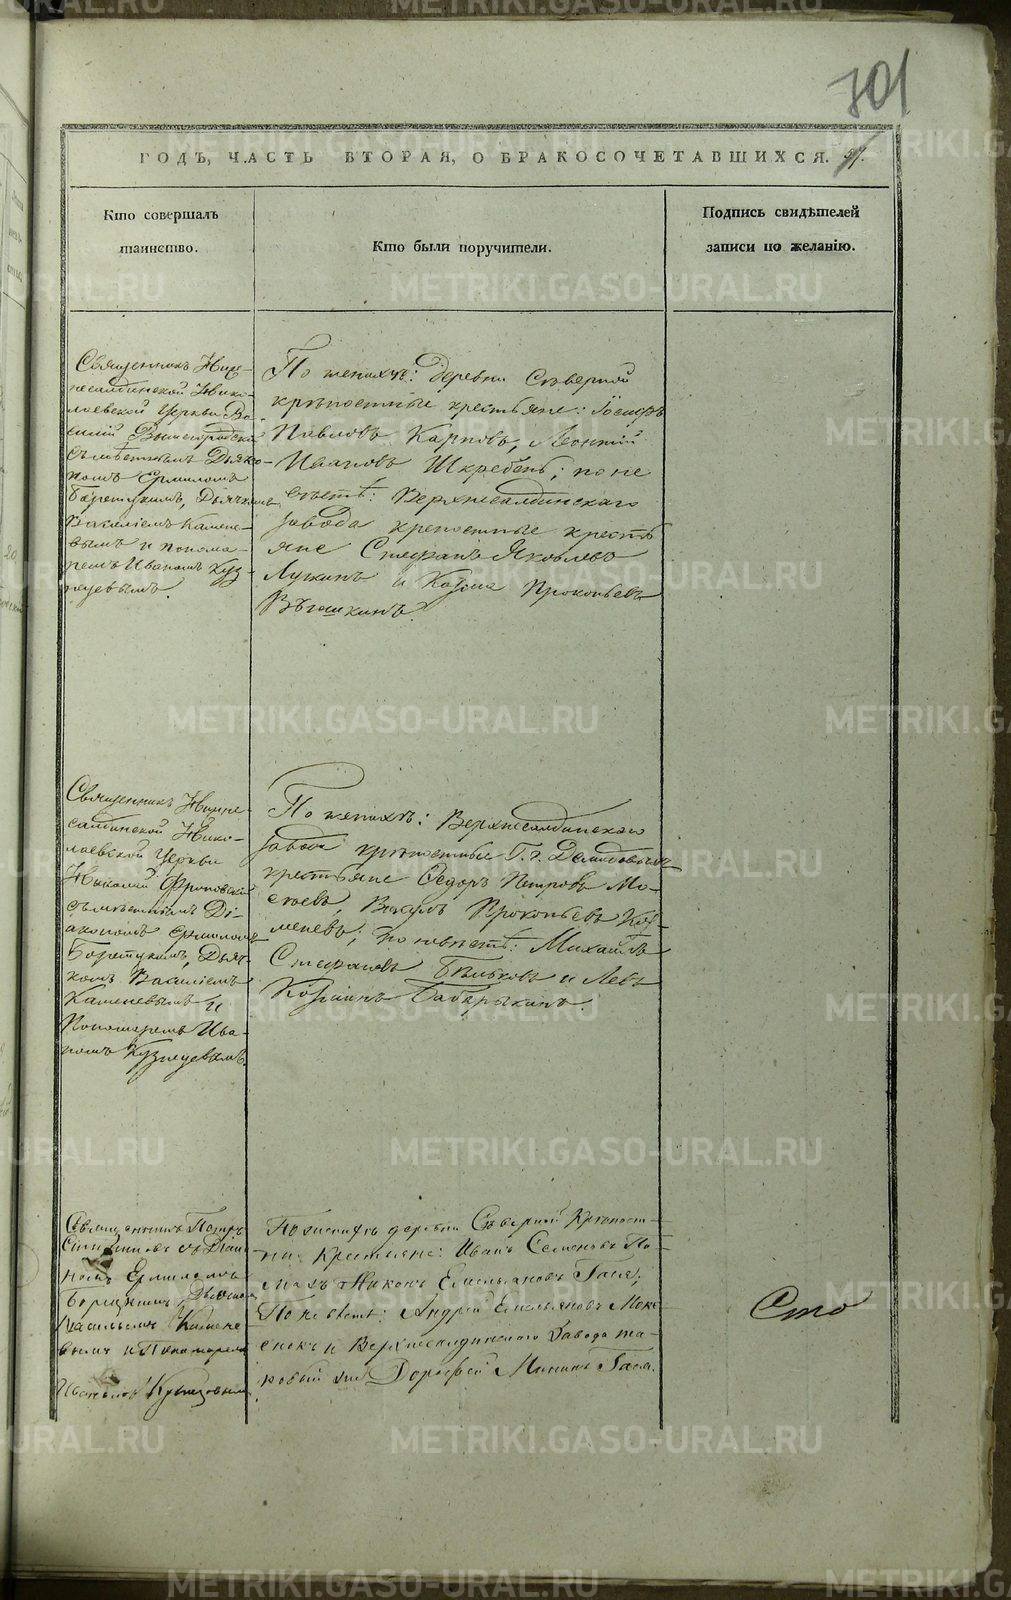 701
ГОДЪ, ЧАСТЬ ВТОРАЯ, О БРАКОСОЧЕТАВШИХСЯ.
Кто совершалъ
таинство.
Кто были поручители.
Подпись свидѣтелей
записи по желанію.
Священникъ Ниж-
несалдинской Нико-
лаевской Церкви Ва-
силій
Дьяко-
номъ Ермиломъ
Дьячкомъ
Василіемъ Камене-
вымъ и понома-
ремъ Иваномъ Куз-
нецовымъ.
По женихѣ: деревни Сѣверной
крѣпостные крестьяне: Іосифъ
Павловъ Карповъ, Леонтій
Ивановъ Шкребень; по не
вѣстѣ: Верхнесалдинскаго
завода крепостные кресть
яне Стефанъ Яковлевъ
и Козма Прокопьевъ
Священникъ Нижне-
салдинской Нико-
лаевской Церкви
Николай
Ді-
акономъ Ермиломъ
Дьяч-
комъ Василіемъ
Каменевымъ и
Пономаремъ Ива-
номъ Кузнецовымъ.
По женихѣ: Верхнесалдинскаго
завода крѣпостные Г. г. Демидовыхъ
крестьяне Федоръ Петровъ Мо-
Прокопьевъ Ка-
меневъ; по невѣстѣ: Михайло
Стефановъ и Левъ
Козминъ Бабарыкинъ.
Священникъ Петръ
съ Діако-
номъ Ермиломъ
Васильемъ Камене-
вымъ и Пономаремъ
Иваномъ Кузнецовымъ
По женихѣ деревни Сѣверной Крѣпост-
ные Крестьяне: Иванъ Семеновъ По-
Никонъ Емельяновъ Гася;
По невѣстѣ: Андрей Емельяновъ
и Верхнесалдинскаго Завода та-
ковый же Дорофей Мининъ Гася.
Сто
METRIKI.GASO-URAL.RU